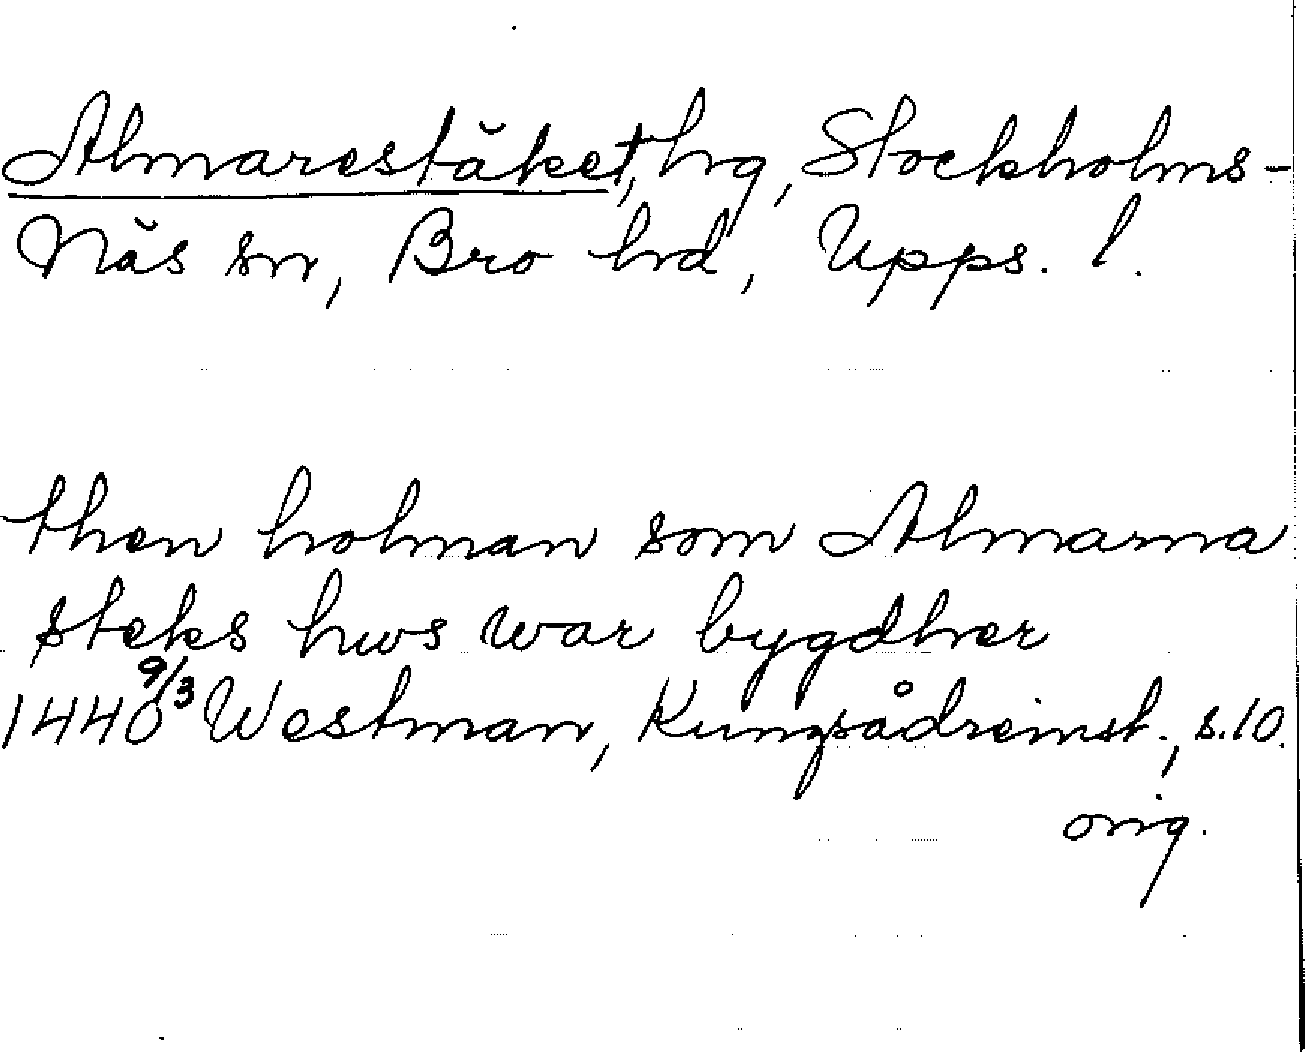 Almarestäket, hg, Stockholms-
Näs sn, Bro hd, Upps. l.
then holman som Almarna
steks hws war bygdher
1440 9/3 Westman, Kungsådreinst., s. 10.
orig.